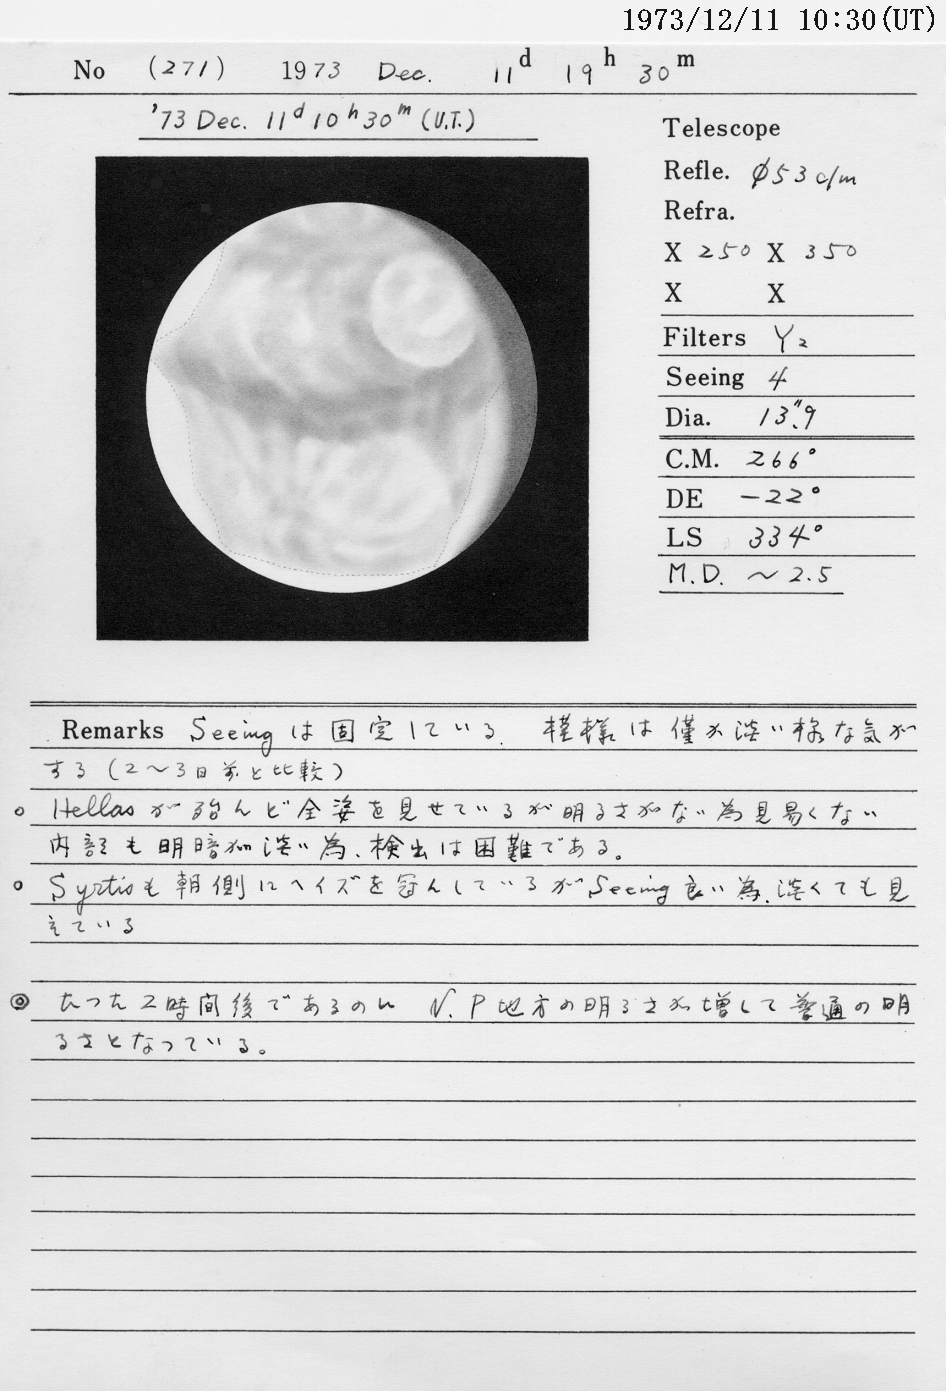 1973/12/11 10:30(UT)
No (271) 1973 Dec. 11d 19h 30m
'73 Dec. 11d 10h 30m (U.T.)
Telescope
Refle. φ53 c/m
Refra.
X 250 X 350
X X
Filters Y2
Seeing 4
Dia. 13".9
C.M. 266°
DE -22°
LS 334°
M.D. ～2.5
Remarks Seeing は固定している. 模様は僅か淡い様な気が
する (2～3日前と比較)
○ Hellasが殆んど全姿を見せているが明るさがない為見易くない
内部も明暗が淡い為、検出は困難である。
○ Syrtisも朝側にヘイズを冠んしているがSeeing良い為、淡くても見
えている
◎ たった2時間後であるのに N.P地方の明るさが増して普通の明
るさとなっている。